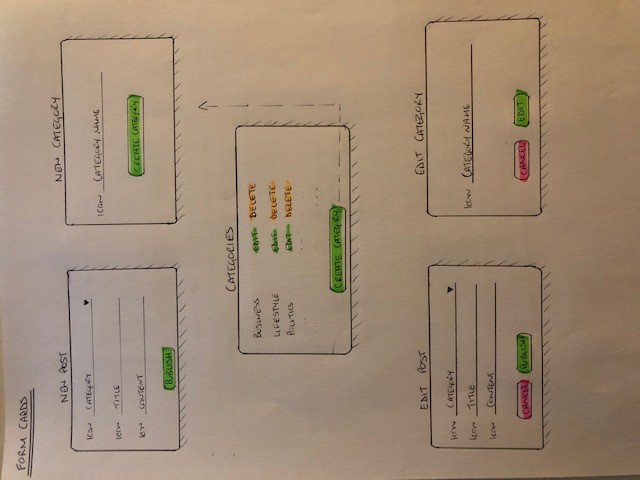 FORM CARDS
NEW POST
ICON CATEGORY
ICON TITLE
ICON CONTENT
PUBLISH
NEW CATEGORY
ICON CATEGORY NAME
CREATE CATEGORY
CATEGORIES
BUSINESS EDIT DELETE
LIFESTYLE EDIT DELETE
POLITICS EDIT DELETE
CREATE CATEGORY
EDIT POST
ICON CATEGORY
ICON TITLE
ICON CONTENT
CANCEL PUBLISH
EDIT CATEGORY
ICON CATEGORY NAME
CANCEL EDIT